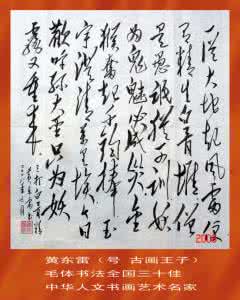 一从大地起风雷便
有精生白骨堆僧
是愚氓犹可训妖
为鬼蜮必成灾金
猴奋起千钧棒玉
宇澄清万里埃今日
欢呼孙大圣只为妖
雾又重来
三打白骨精
黄东雷(号 古画王子)
毛体书法全国三十佳
中华人文书画艺术名家